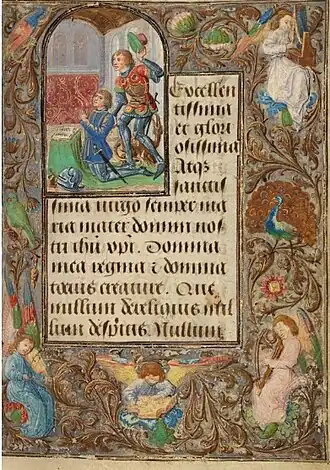 Excellen
tissima
et glori
osissima
Atq3
sanctis
sima virgo semper ma
ria mater domini nos
tri ihu xpi. Domina
mea regina et domina
totius creature. Que
nullum derelinquis nul
lum despicis Nullum